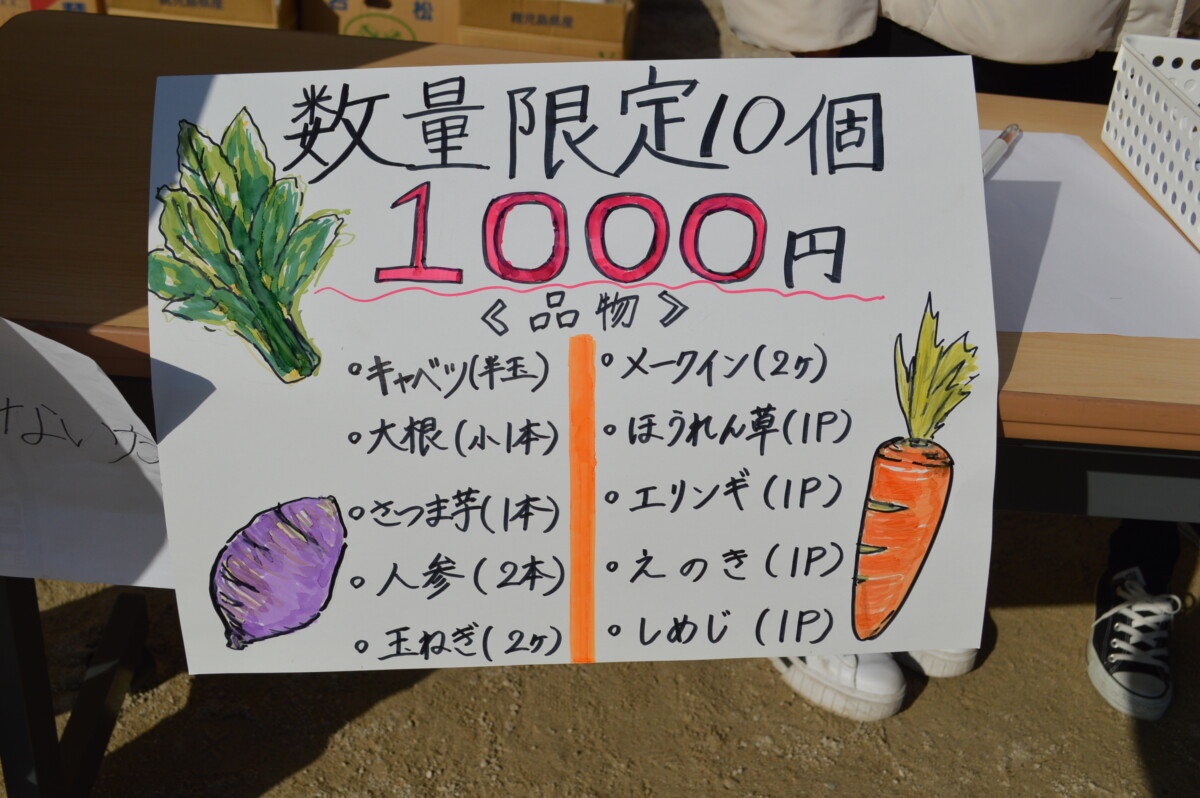 鹿児島県産
数量限定10個
1000円
《品物》
・キャベツ(半玉)
・大根(小1本)
・さつま芋(1本)
・人参(2本)
・玉ねぎ(2ヶ)
・メークイン(2ヶ)
・ほうれん草(1P)
・エリンギ(1P)
・えのき(1P)
・しめじ(1P)